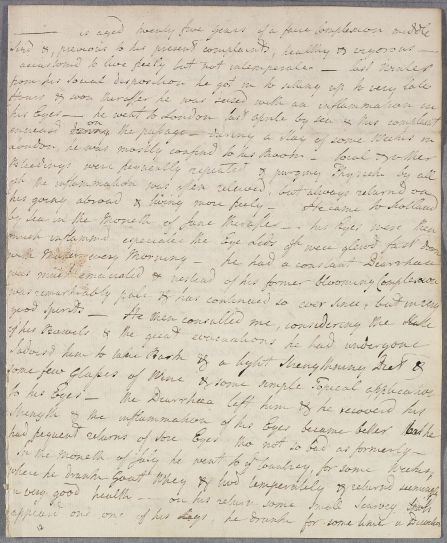 ——— is aged twenty five years of a fair Complexion middle
sized &, previous to his present complaints, healthy & vigorous —
accustomed to live freely but not intemperately — last Winter
from his social disposition he got in to sitting up to very late
Hours, & soon thereafter he was seized with an inflammation in
his Eyes — he went to London last by sea & this complaint
increased on the passage — during a stay of some Weeks in
London he was mostly confined to his Room — local & other
Bleedings were frequently repeated & purging Physick by all
the inflammation was often relieved, but always returned on
his going abroad & living more freely — He came to Scotland
by sea in the Month of June thereafter — his Eyes were then
much inflamed especially the Eye Lids wh were glewed fast down
with Matter every Morning — he had a constant Diarrhoea
was much emaciated & instead of his former blooming Complexion
was remarkably pale & has continued so ever since, but in very
good spirits — He then consulted me, considering the State
of his Bowels & the great evacuations he had undergone
I advised him to take Bark & a light strengthening Diet &
some few Glasses of Wine & some simple Topical applications
to his Eyes — the Diarrhoea left him & he recovered his
Strength & the inflammation of his Eyes became better he
had frequent returns of sore Eyes tho not so bad as formerly —
In the month of July he went to ye Country, for some Weeks,
where he drank Goat Whey & lived temperately & returned
in very good health — on his return some small Scurvy Spots
appeared on one of his Legs, he drank for some time a Decoction